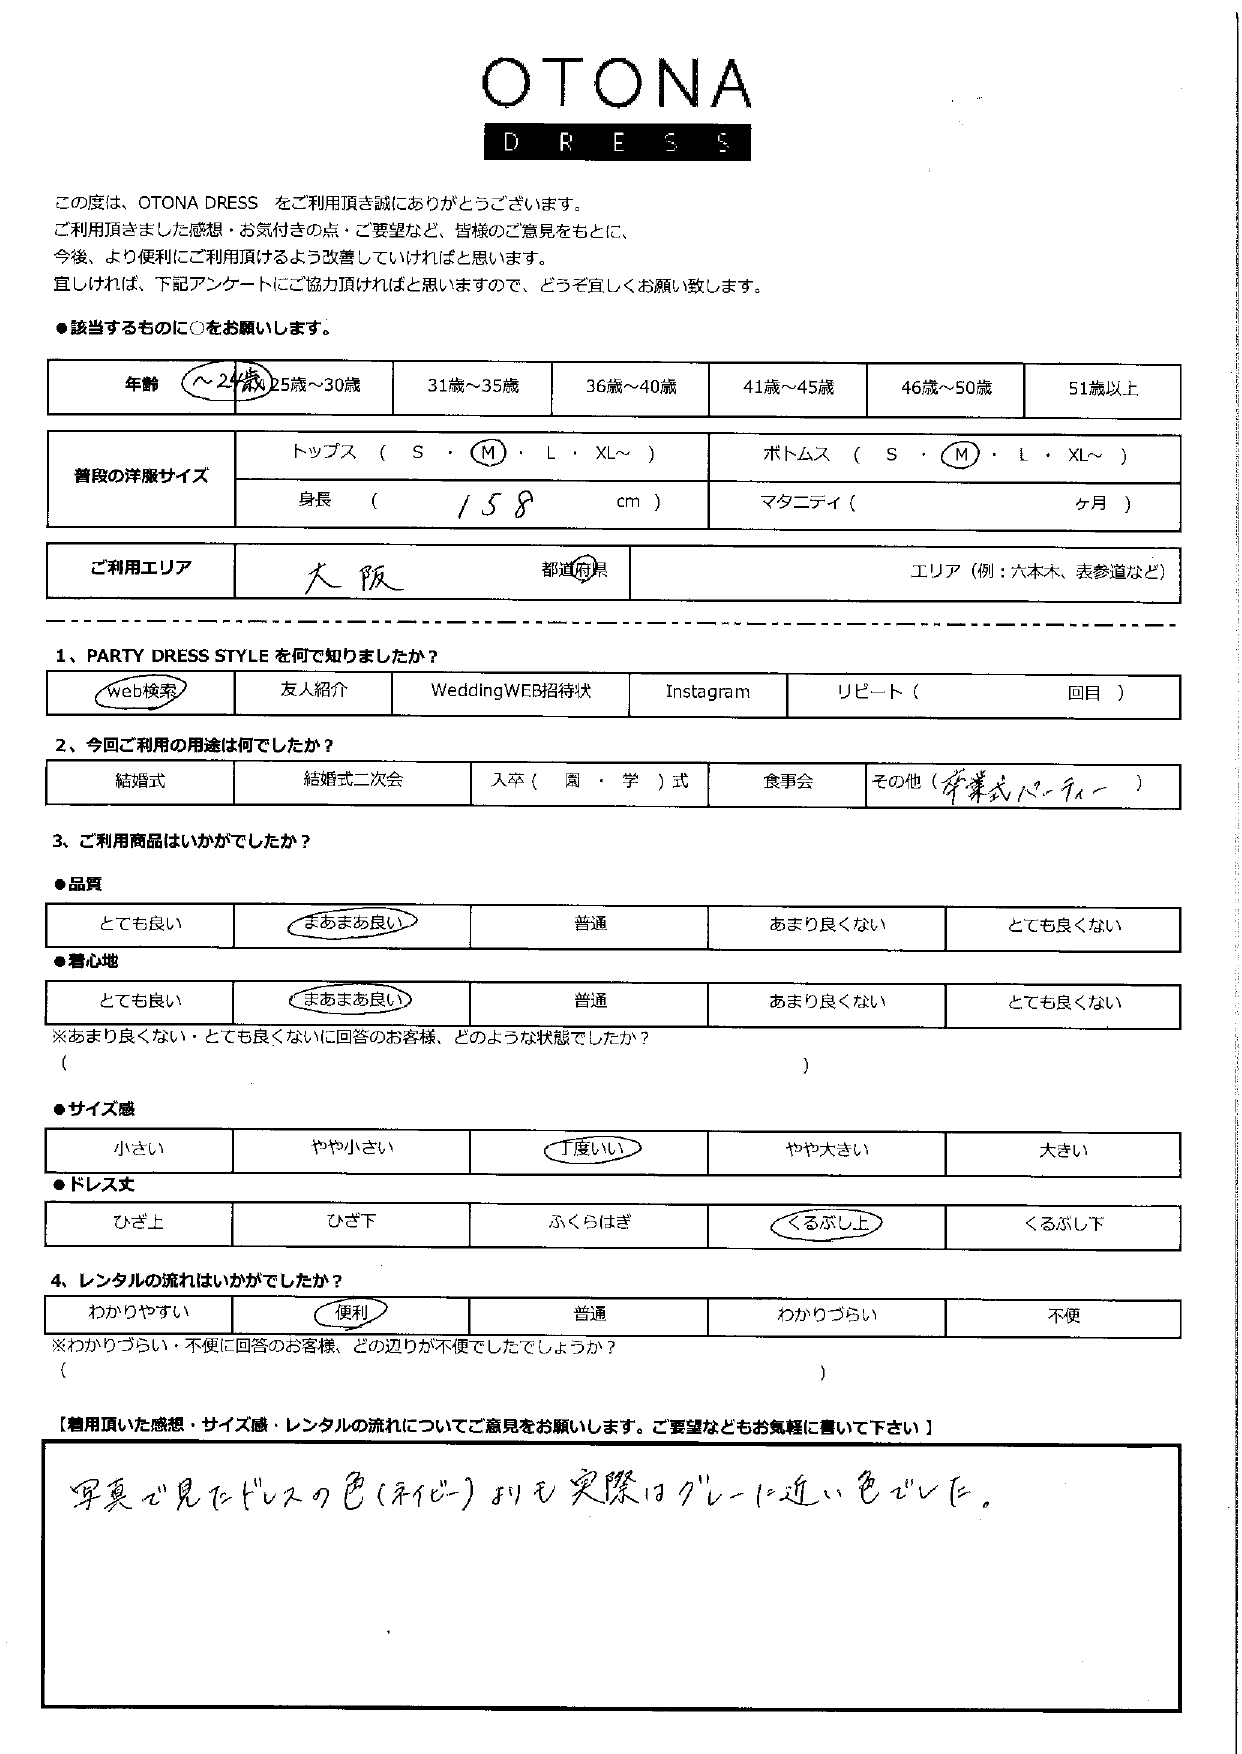 OTONA
DRESS
この度は、OTONA DRESS をご利用頂き誠にありがとうございます。
ご利用頂きました感想・お気付きの点・ご要望など、皆様のご意見をもとに、
今後、より便利にご利用頂けるよう改善していければと思います。
宜しければ、下記アンケートにご協力頂ければと思いますので、どうぞ宜しくお願い致します。
●該当するものに○をお願いします。
年齢 ～24歳 25歳～30歳 31歳～35歳 36歳～40歳 41歳～45歳 46歳～50歳 51歳以上
普段の洋服サイズ トップス ( S ・ M ・ L ・ XL～ ) ボトムス ( S ・ M ・ L ・ XL～ )
身長 ( 158 cm ) マタニティ ( ヶ月 )
ご利用エリア 大阪 都道府県 エリア（例：六本木、表参道など）
1、PARTY DRESS STYLE を何で知りましたか？
web検索 友人紹介 WeddingWEB招待状 Instagram リピート ( 回目 )
2、今回ご利用の用途は何でしたか？
結婚式 結婚式二次会 入卒 ( 園 ・ 学 ) 式 食事会 その他 ( 卒業式パーティー )
3、ご利用商品はいかがでしたか？
●品質
とても良い まあまあ良い 普通 あまり良くない とても良くない
●着心地
とても良い まあまあ良い 普通 あまり良くない とても良くない
※あまり良くない・とても良くないに回答のお客様、どのような状態でしたか？
( )
●サイズ感
小さい やや小さい 丁度いい やや大きい 大きい
●ドレス丈
ひざ上 ひざ下 ふくらはぎ くるぶし上 くるぶし下
4、レンタルの流れはいかがでしたか？
わかりやすい 便利 普通 わかりづらい 不便
※わかりづらい・不便に回答のお客様、どの辺りが不便でしたでしょうか？
( )
【着用頂いた感想・サイズ感・レンタルの流れについてご意見をお願いします。ご要望などもお気軽に書いて下さい 】
写真で見たドレスの色(ネイビー)よりも実際はグレーに近い色でした。